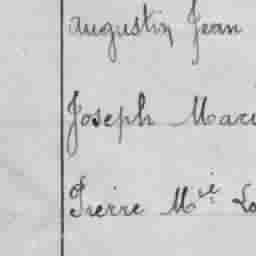 Augustin Jean
Joseph Mari
Pierre Mie Lo